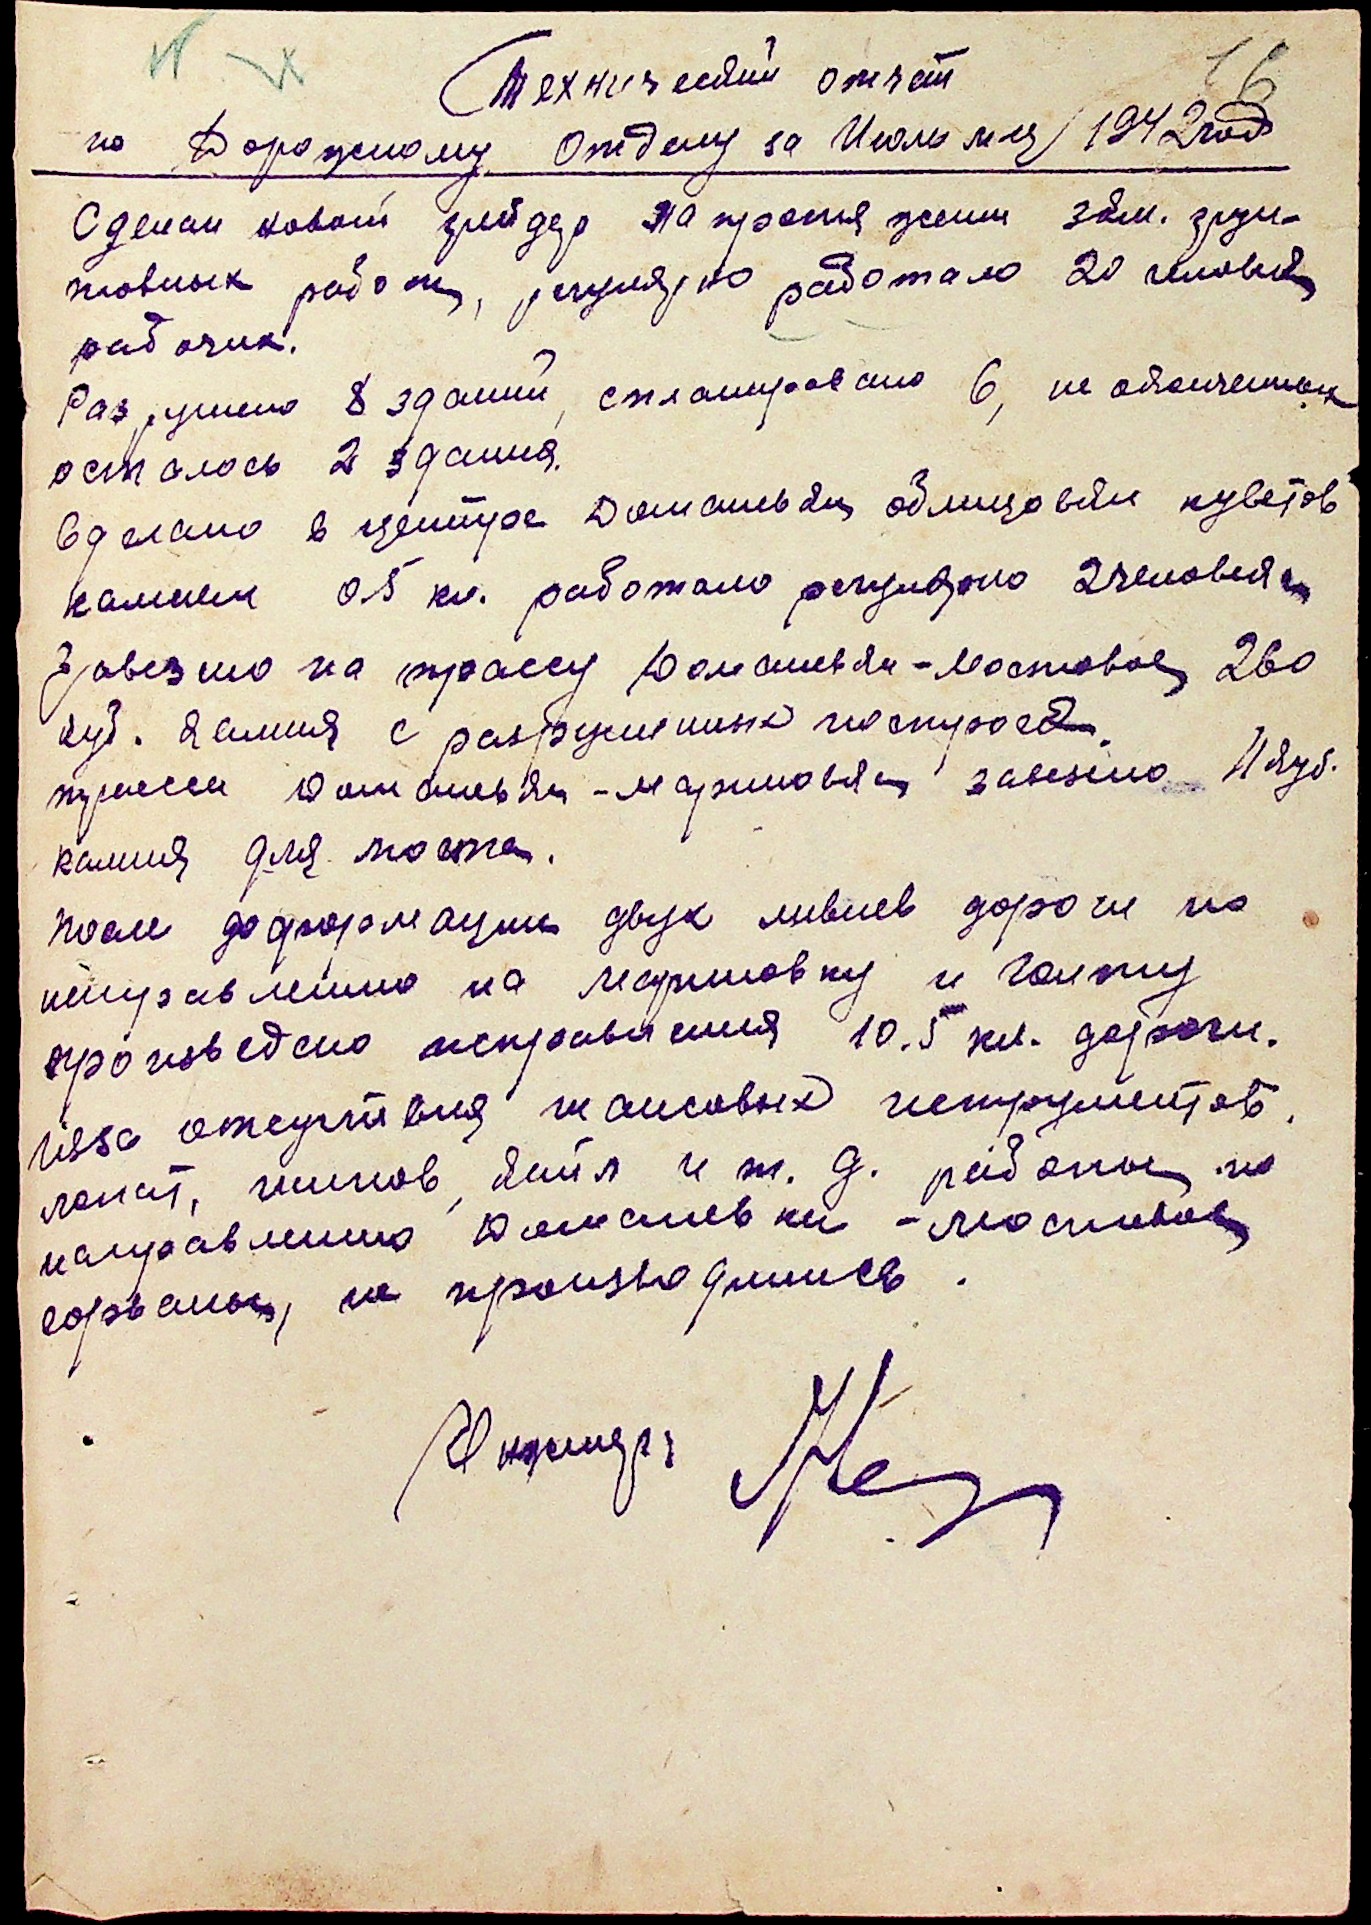 16
Технический отчет
по Дорожному Отделу за Июль м-ц 1942 год
Сделан новый грейдер на протяжении 3 км. грун-
товых работ, регулярно работало 20 человек
рабочих.
Разрушено 8 зданий, спланировано 6, не оконченных
осталось 2 здания.
Сделано в центре Доманевки облицовки куветов
камнем 0.5 км. работало регулярно 2 человека
Завезено на трассу Доманевки-Мостовое 260
куб. камня с разрушенных построек.
трасса Доманевки-Мариновка завезено 11 куб.
камня для моста.
После деформации двух ливнев дороги по
направлению на Мариновку и Голту
произведено исправления 10.5 км. дороги.
Изза отсутствия шансовых иструментов,
лопат, кайл и т. д. работы по
направлению Доманевки-Мостовое
сорваны, не производились.
Инженер: